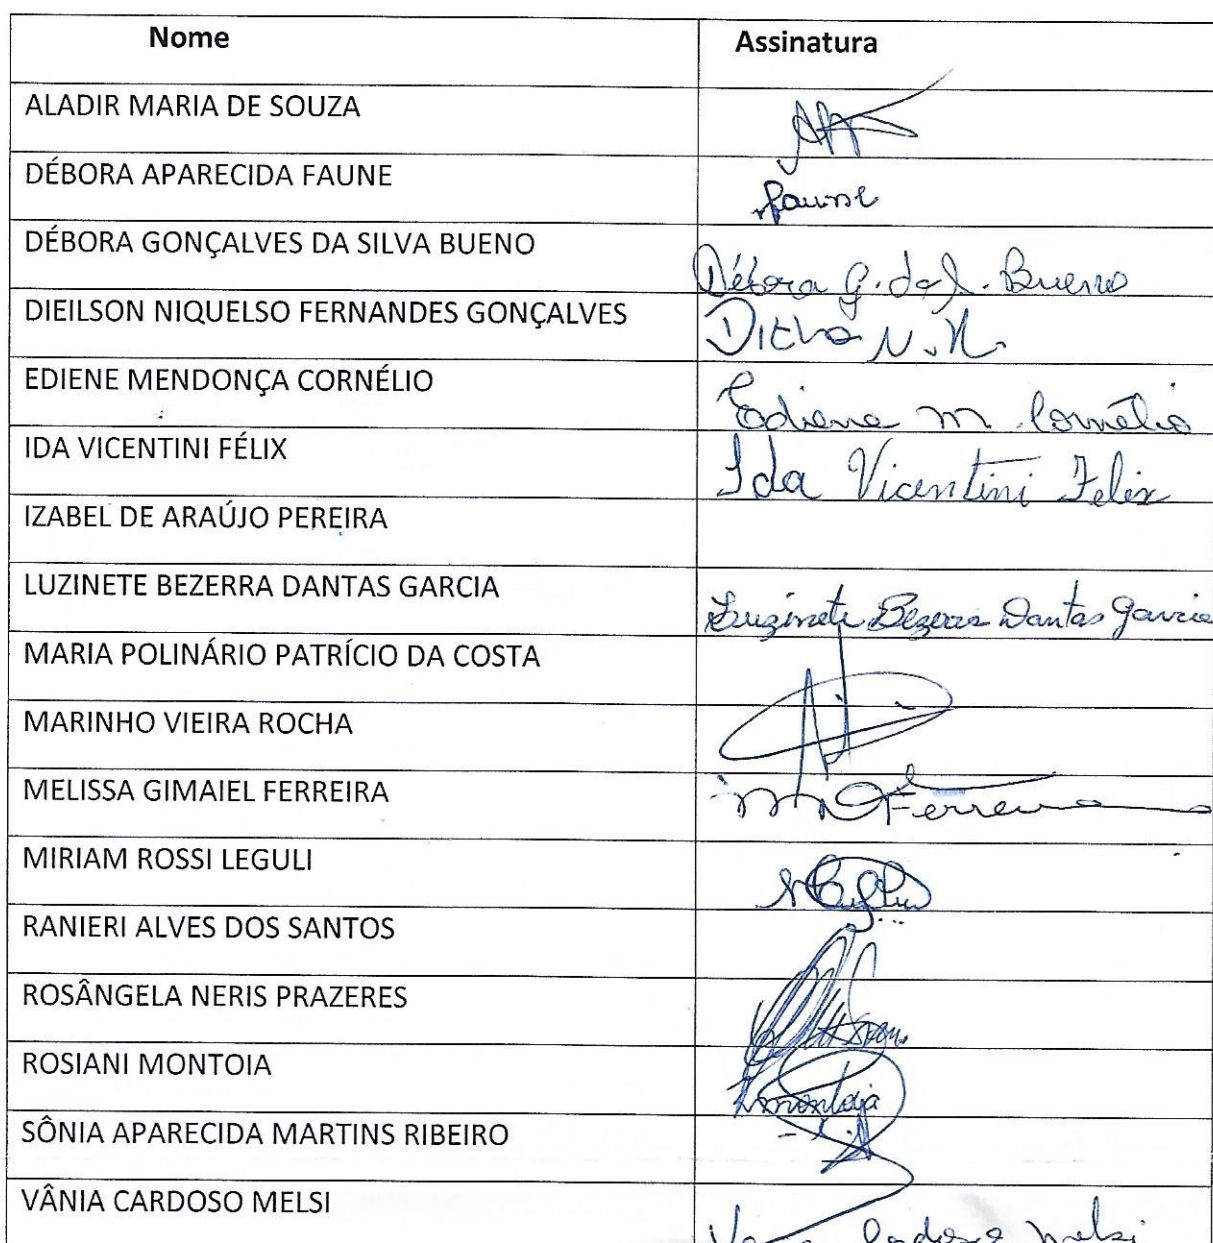 Nome Assinatura
ALADIR MARIA DE SOUZA
DÉBORA APARECIDA FAUNE Faune
DÉBORA GONÇALVES DA SILVA BUENO Débora G. da S. Bueno
DIEILSON NIQUELSO FERNANDES GONÇALVES
EDIENE MENDONÇA CORNÉLIO Ediene M Cornélio
IDA VICENTINI FÉLIX Ida Vicentini Felix
IZABEL DE ARAÚJO PEREIRA
LUZINETE BEZERRA DANTAS GARCIA Luzinete Bezerra Dantas Garcia
MARIA POLINÁRIO PATRÍCIO DA COSTA
MARINHO VIEIRA ROCHA
MELISSA GIMAIEL FERREIRA Ferreira
MIRIAM ROSSI LEGULI
RANIERI ALVES DOS SANTOS
ROSÂNGELA NERIS PRAZERES
ROSIANI MONTOIA Rmontoia
SÔNIA APARECIDA MARTINS RIBEIRO
VÂNIA CARDOSO MELSI Vania Cardoso Melsi